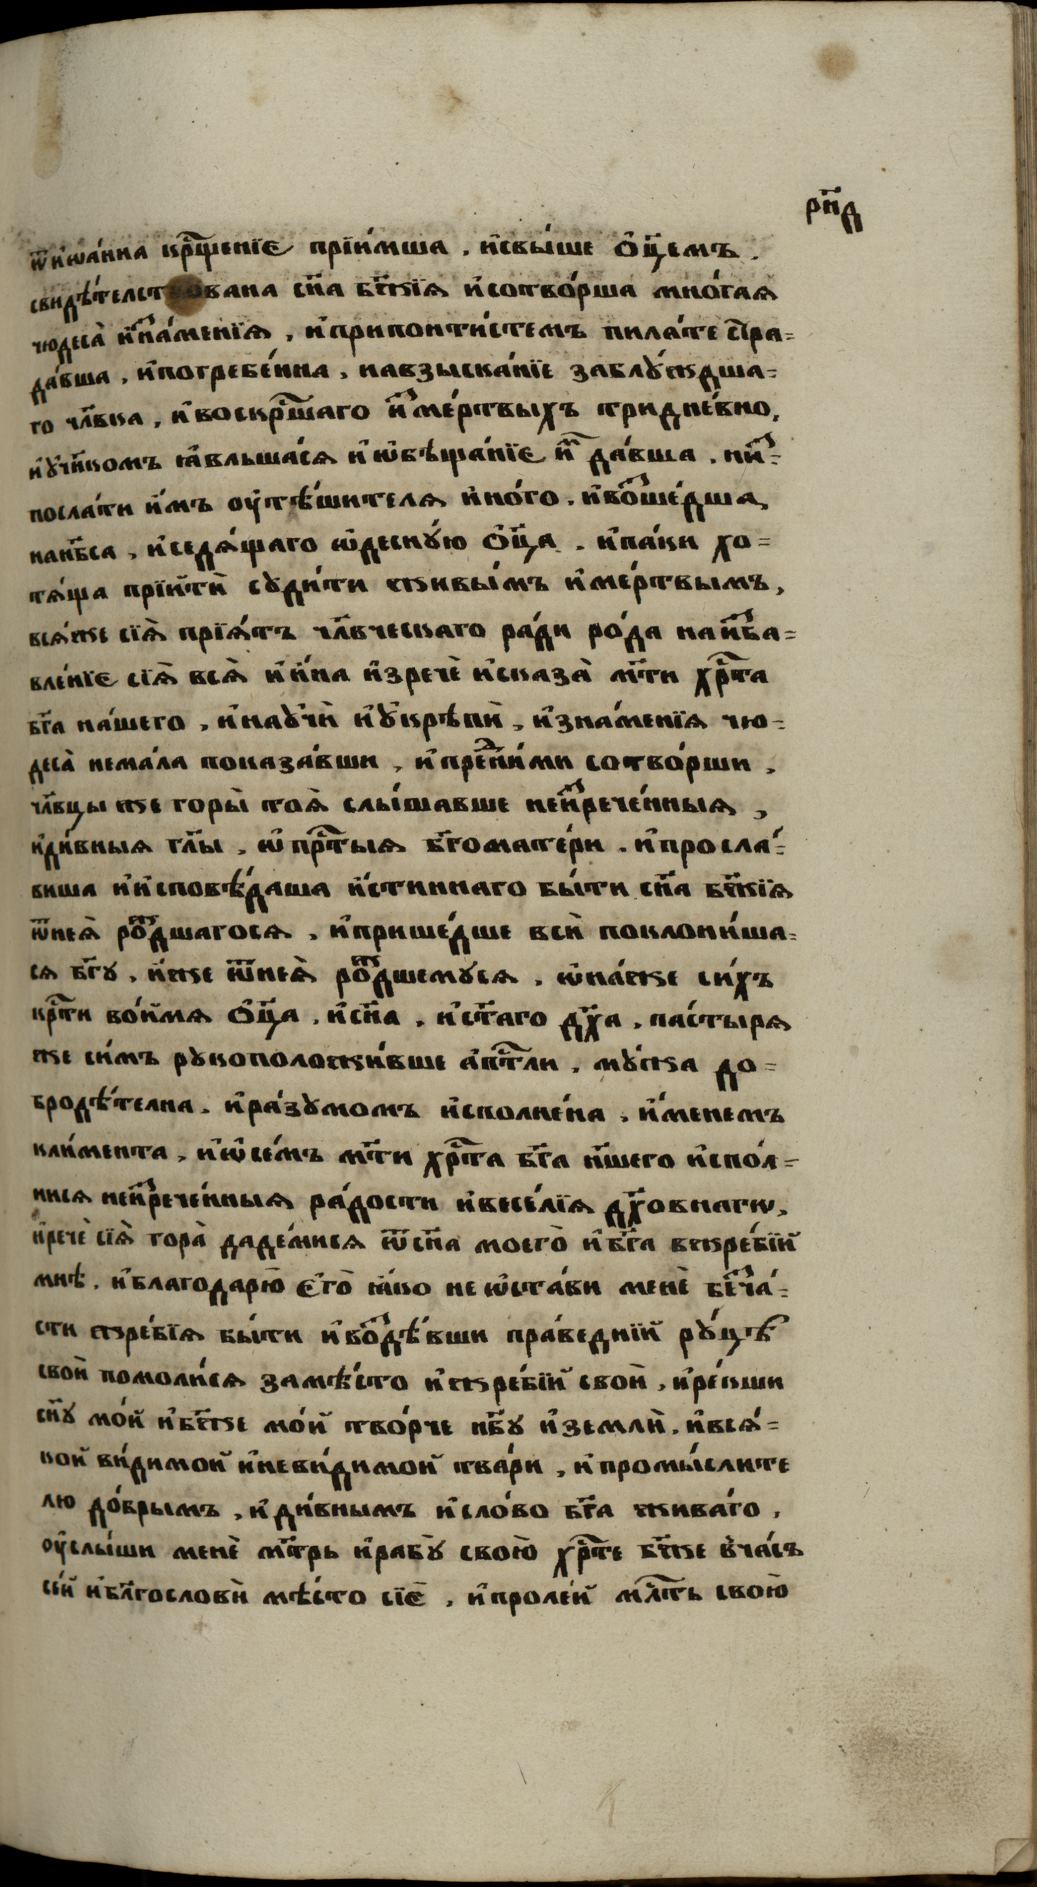 рн҃д
ѿ і҆ѡа́нна кр҃щенїе прїи́мша . и҆ свы́ше ѻ҆ц҃емъ .
свидѣ́тельствована сн҃а бж҃їѧ и҆ сотво́рша мно́гаѧ
чюдеса̀ и҆ зна́менїѧ , и҆ при понти́стемъ пила́те стра=
да́вша , и҆ погребе́нна , на взыска́нїе заблу́ждша=
го чл҃вка , и҆ воскр҃шаго и҆з̾ ме́ртвыхъ тридне́вно ,
и҆ ᲂу҆чн҃комъ ꙗ҆вльша́сѧ и҆ ѡ҆бѣща́нїе и҆м̾ да́вша . ни҃з̾=
посла́ти и҆́мъ ᲂу҆тѣ́шителѧ и҆но́го . и҆ воз̾ше́дша
на нб҃са , и҆ седѧ́щаго ѡ҆десну́ю ѻ҆ц҃а . и҆ па́ки хо=
тѧ́ща прїитѝ суди́ти живы́мъ и҆ ме́ртвымъ ,
всѧ́же сїѧ̀ прїѧ́тъ чл҃вческаго ра́ди ро́да на и҆зба=
вле́нїе сїѧ̀ всѧ̀ и҆ и҆́на и҆зречѐ и҆ сказа̀ мт҃и хр҃та
бг҃а на́шего , и҆ наᲂучѝ и҆ ᲂу҆крѣпѝ , и҆ зна́менїѧ чю=
деса̀ нема́ла показа́вши , и҆ пре́д̾ ни́ми сотво́рши .
чл҃вцы же горы̀ тоѧ̀ слы́шавше неи҆з̾рече́нныѧ ,
и҆ ди́вныѧ гл҃ы , ѡ҆ пр҃тыѧ бг҃ома́тери . и҆ просла́=
виша и҆ и҆сповѣ́даша и҆́стиннаго бы́ти сн҃а бж҃їѧ
ѿ неѧ̀ рож́дшагосѧ , и҆ прише́дше всѝ поклони́ша=
сѧ бг҃у , и҆́же ѿ неѧ̀ рож́дшемусѧ . ѡ҆на́же си́хъ
кр҃ти во и҆́мѧ ѻ҆ц҃а . и҆ сн҃а . и҆ ст҃аго дх҃а . па́стырѧ
же си́мъ рукоположи́вше а҆пт҃ли , му́жа до=
бродѣ́телна . и҆ ра́зумомъ и҆сполне́на . и҆́менемъ
кли́мента , и҆ ѡ҆ се́мъ мт҃и хр҃та бг҃а нш҃его и҆спо́л=
нисѧ неи҆з̾рече́нныѧ ра́дости и҆ весе́лїѧ дх҃овнагѡ ,
и҆ речѐ сїѧ̀ гора̀ даде́мисѧ ѿ сн҃а моего̀ и҆ бг҃а в жре́бїй
мнѣ̀ . и҆ благодарю̀ є҆го̀ ꙗ҆́ко не ѡ҆ста́ви менѐ без̾ча́=
сти жре́бїѧ бы́ти и҆ воз̾дѣ́вши пра́веднїй ру́цѣ
своѝ помоли́сѧ за мѣ́сто и҆ жре́бїй свой , и҆ ре́кши
сн҃у мо́й и҆ бж҃е мо́й тво́рче нб҃у и҆ землѝ . и҆ всѧ́=
кой ви́димой и҆ неви́димой тва́ри , и҆ промы́слите
лю до́брымъ , и҆ ди́внымъ и҆ сло́во бг҃а жива́го .
ᲂу҆слы́ши менѐ мт҃рь и҆ рабꙋ̀ свою̀ хр҃те бж҃е в̾ ча́съ
се́й и҆ бл҃гословѝ мѣ́сто сїѐ , и҆ проле́й мл҃ть свою̀